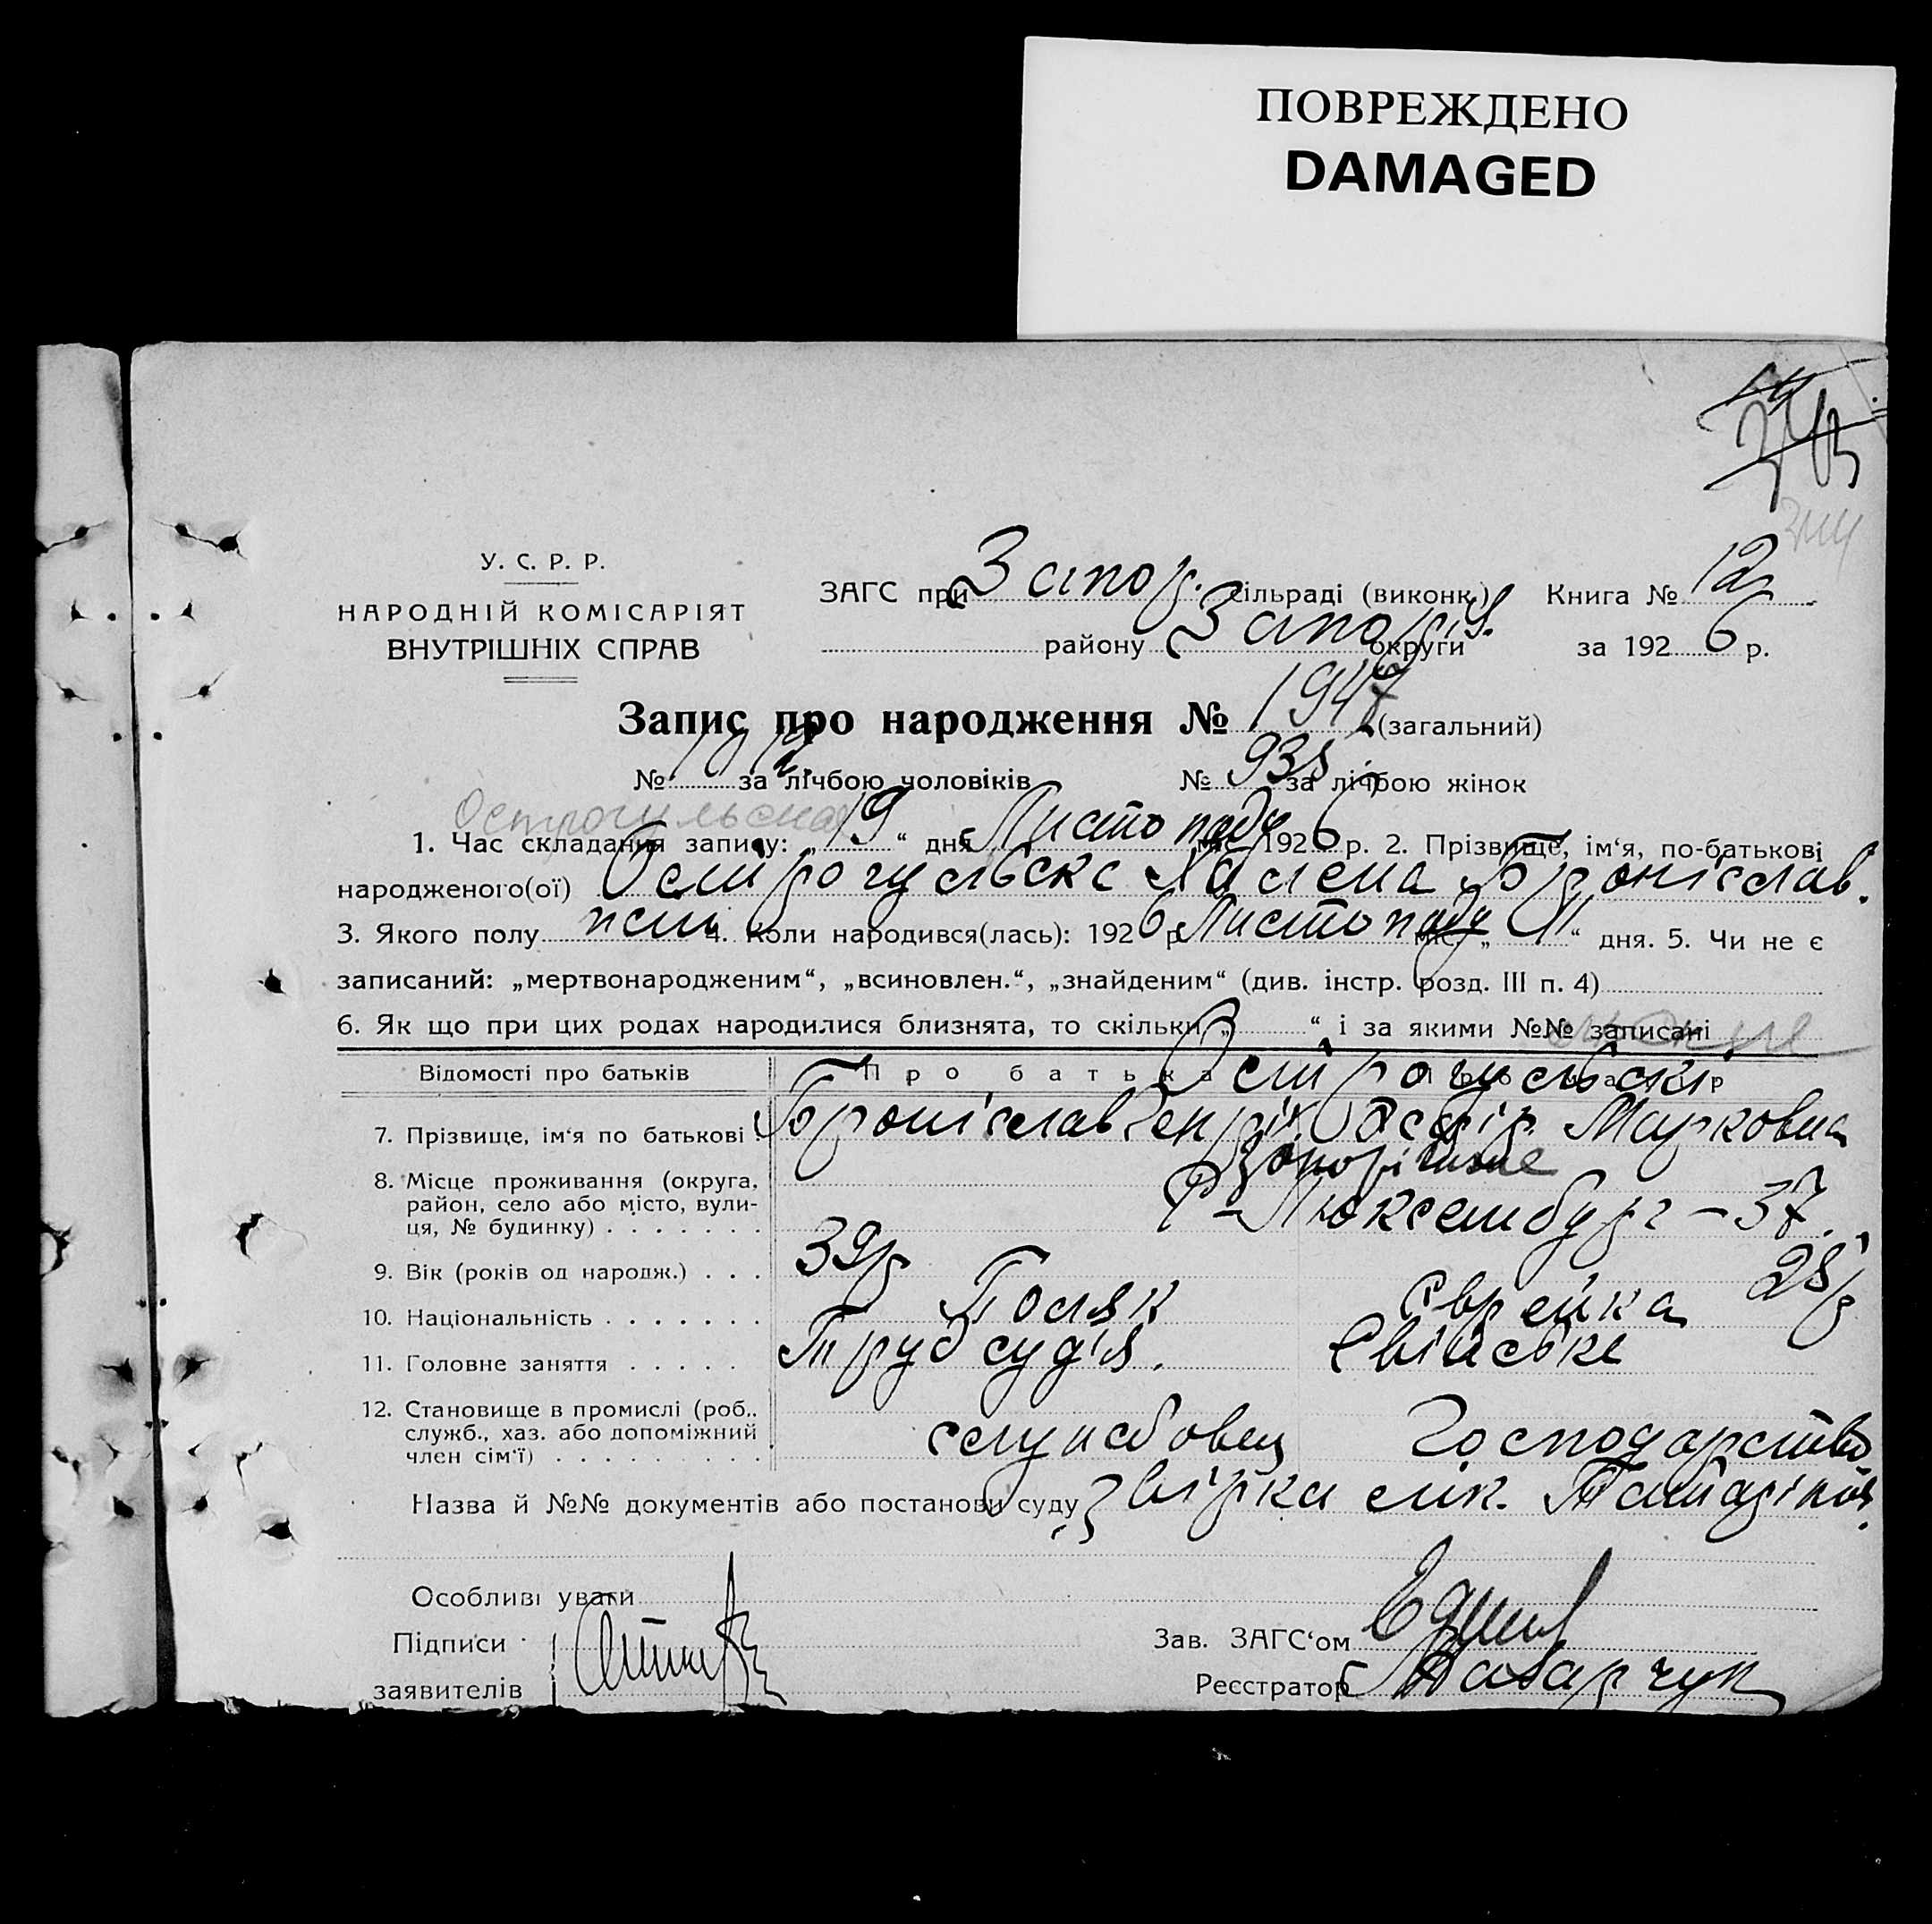 ПОВРЕЖДЕНО
DAMAGED
У. С. Р. Р.
НАРОДНІЙ КОМІСАРІЯТ
ВНУТРІШНІХ СПРАВ
ЗАГС при Запор. сільраді (виконк.) Книга № 12
району Запоріз. округи за 1926 р.
Запис про народження № 1947 (загальний)
№ за лічбою чоловіків № 938 за лічбою жінок
Острогульская
1. Час складання запису: „19“ дня Листопаду міс. 1926 р. 2. Прізвище, ім‘я, по-батькові
народженого(ої) Острогульска Броніслав.
3. Якого полу жін. 4. Коли народився(лась): 1926 р. Листопаду міс. „11“ дня. 5. Чи не є
записаний: „мертвонародженим“, „всиновлен.“, „знайденим“ (див. інстр. розд. III п. 4)
6. Як що при цих родах народилися близнята, то скільки „ “ і за якими №№ записані
Відомості про батьків Про батька Про матір
Острогульскі
7. Прізвище, ім‘я по батькові Броніслав Генріх. Марковна
8. Місце проживання (округа, Запоріжже
район, село або місто, вули- Р-Люксембург – 37.
ця, № будинку)
9. Вік (років од народж.) 39р 28р
10. Національність Поляк Єврейка
11. Головне заняття Труд судія. Свійське
12. Становище в промислі (роб.,
служб., хаз. або допоміжний службовец Господарство
член сім‘ї)
Назва й №№ документів або постанови суду звірка
Особливі уваги
Підписи Зав. ЗАГС‘ом
заявителів Реєстратор Назарчук